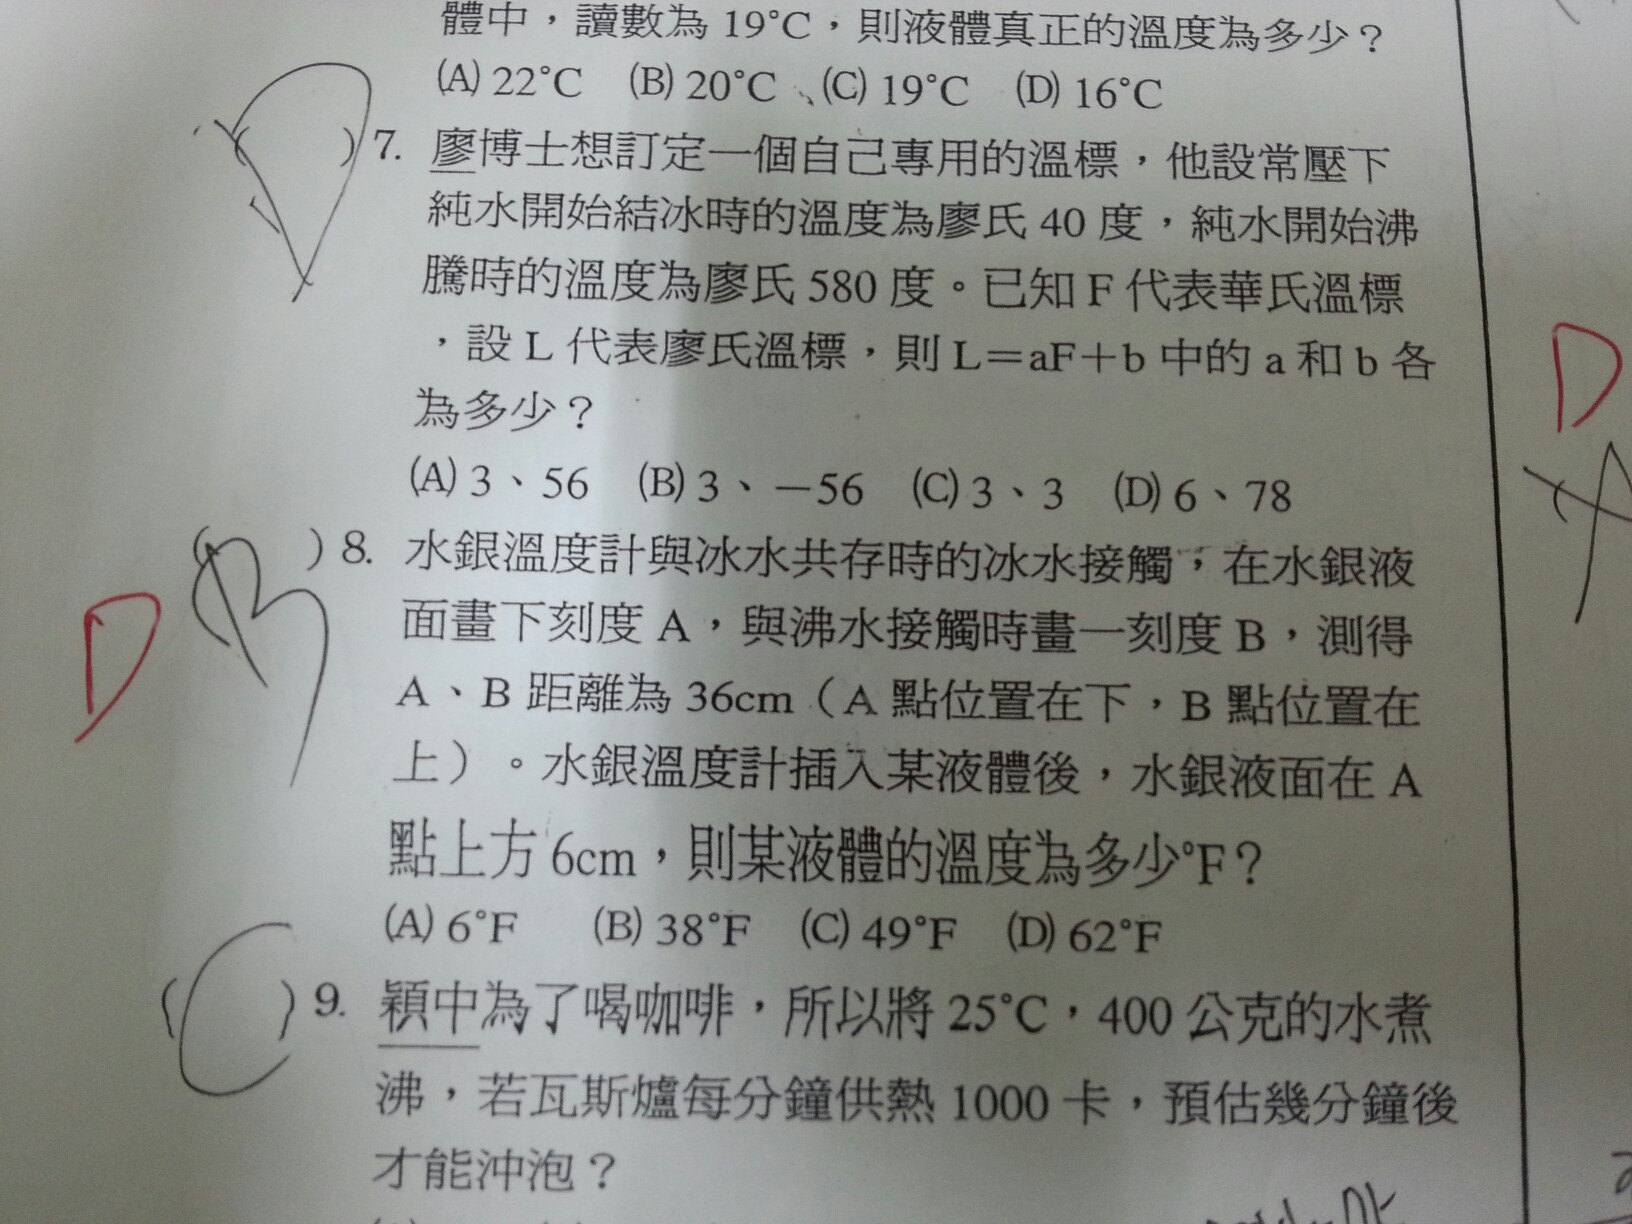 體中，讀數為 19°C，則液體真正的溫度為多少？
(A) 22°C (B) 20°C (C) 19°C (D) 16°C
( )7. 廖博士想訂定一個自己專用的溫標，他設常壓下
純水開始結冰時的溫度為廖氏 40 度，純水開始沸
騰時的溫度為廖氏 580 度。已知 F 代表華氏溫標
，設 L 代表廖氏溫標，則 L＝aF＋b 中的 a 和 b 各
為多少？
(A) 3、56 (B) 3、－56 (C) 3、3 (D) 6、78
D
D
( B )8. 水銀溫度計與冰水共存時的冰水接觸，在水銀液
面畫下刻度 A，與沸水接觸時畫一刻度 B，測得
A、B 距離為 36cm（A 點位置在下，B 點位置在
上）。水銀溫度計插入某液體後，水銀液面在 A
點上方 6cm，則某液體的溫度為多少°F？
(A) 6°F (B) 38°F (C) 49°F (D) 62°F
( C )9. 穎中為了喝咖啡，所以將 25°C，400 公克的水煮
沸，若瓦斯爐每分鐘供熱 1000 卡，預估幾分鐘後
才能沖泡？